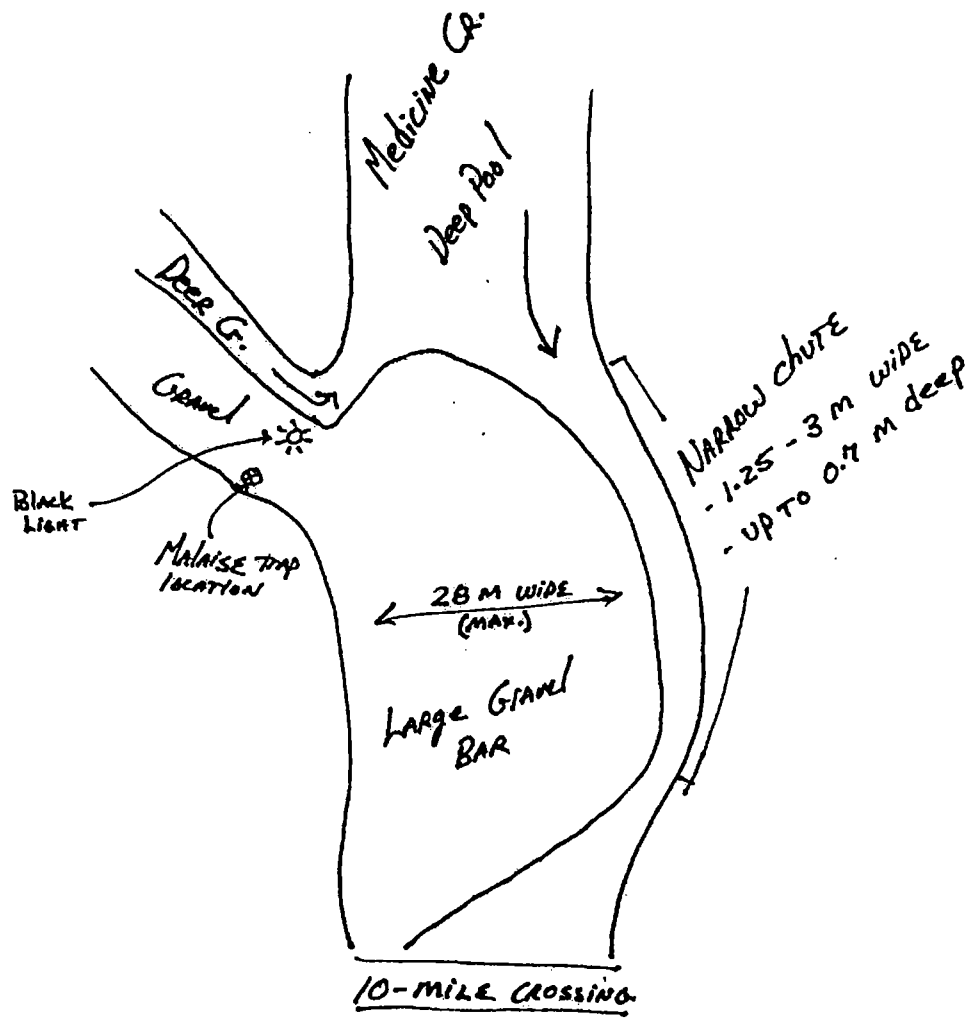 Medicine Cr.
Deep Pool
Deer Cr.
Gravel
Black
Light
Malaise Trap
location
Narrow chute
- 1.25 - 3 m wide
- up to 0.7 m deep
28 m wide
(max.)
Large Gravel
Bar
10-mile crossing